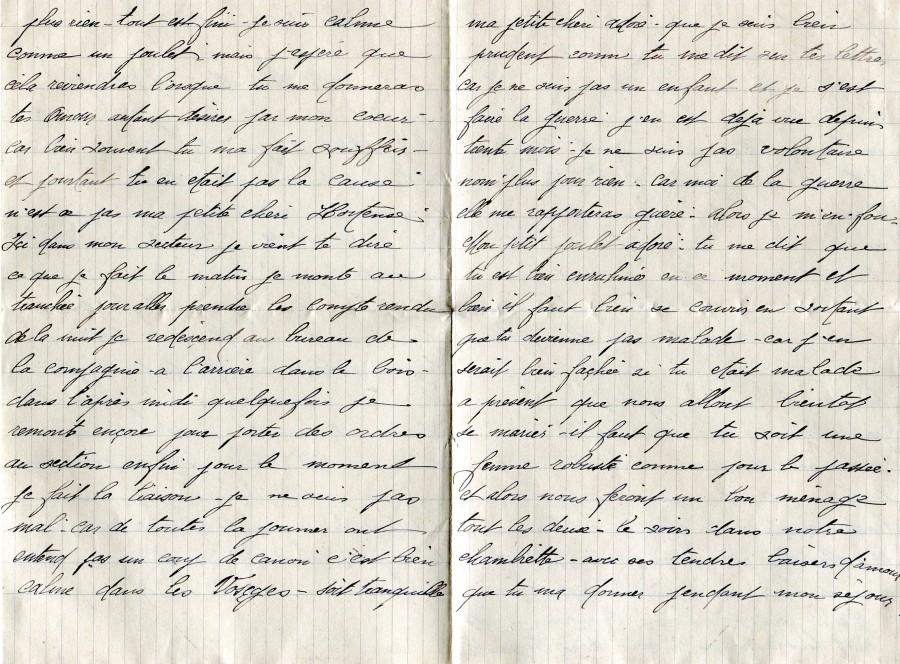 plus rien - tout est fini - je suis calme
comme un poulet, mais j'espère que
cela reviendras lorsque tu me donneras
tes amour autant désires par mon coeur -
car bien souvent tu ma fait souffrir -
et pourtant tu en etait pas la cause
n'est ce pas ma petite cheri Hortense
Ici dans mon secteur je vient te dire
ce que je fait le matin je monte au
tranchée pour aller prendre les compte rendu
de la nuit je redescend au bureau de
la compagnie - a l'arrière dans le bois -
dans l'après midi quelquefois je
remonte encore pour porter des ordres
au section enfin pour le moment
je fait la liaison - je ne suis pas
mal - car de toutes la journer ont
entend pas un coup de canon c'est bien
calme dans les Vosges - soit tranquille
ma petite cheri adoré - que je suis bien
prudent comme tu me dit sur tes lettres
car je ne suis pas un enfant et je s'est
faire la guerre j'en est déjà vue depuis
trente mois - je ne suis pas volontaire
nom plus pour rien - car moi de la guerre
elle me rapporteras guère - alors je m'en fou -
Mon petit poulet adoré - tu me dit que
tu est bien enrhumée en ce moment et
bien il faut bien se couvrir en sortant
que tu devienne pas malade - car j'en
serait bien fachée si tu etait malade
a présent que nous allont bientot
se marier - il faut que tu soit une
femme robuste comme pour le passée -
et alors nous feront un bon ménage
tout les deux - le soir dans notre
chambrette - avec ses tendres baisers d'amour
que tu ma donner pendant mon séjour